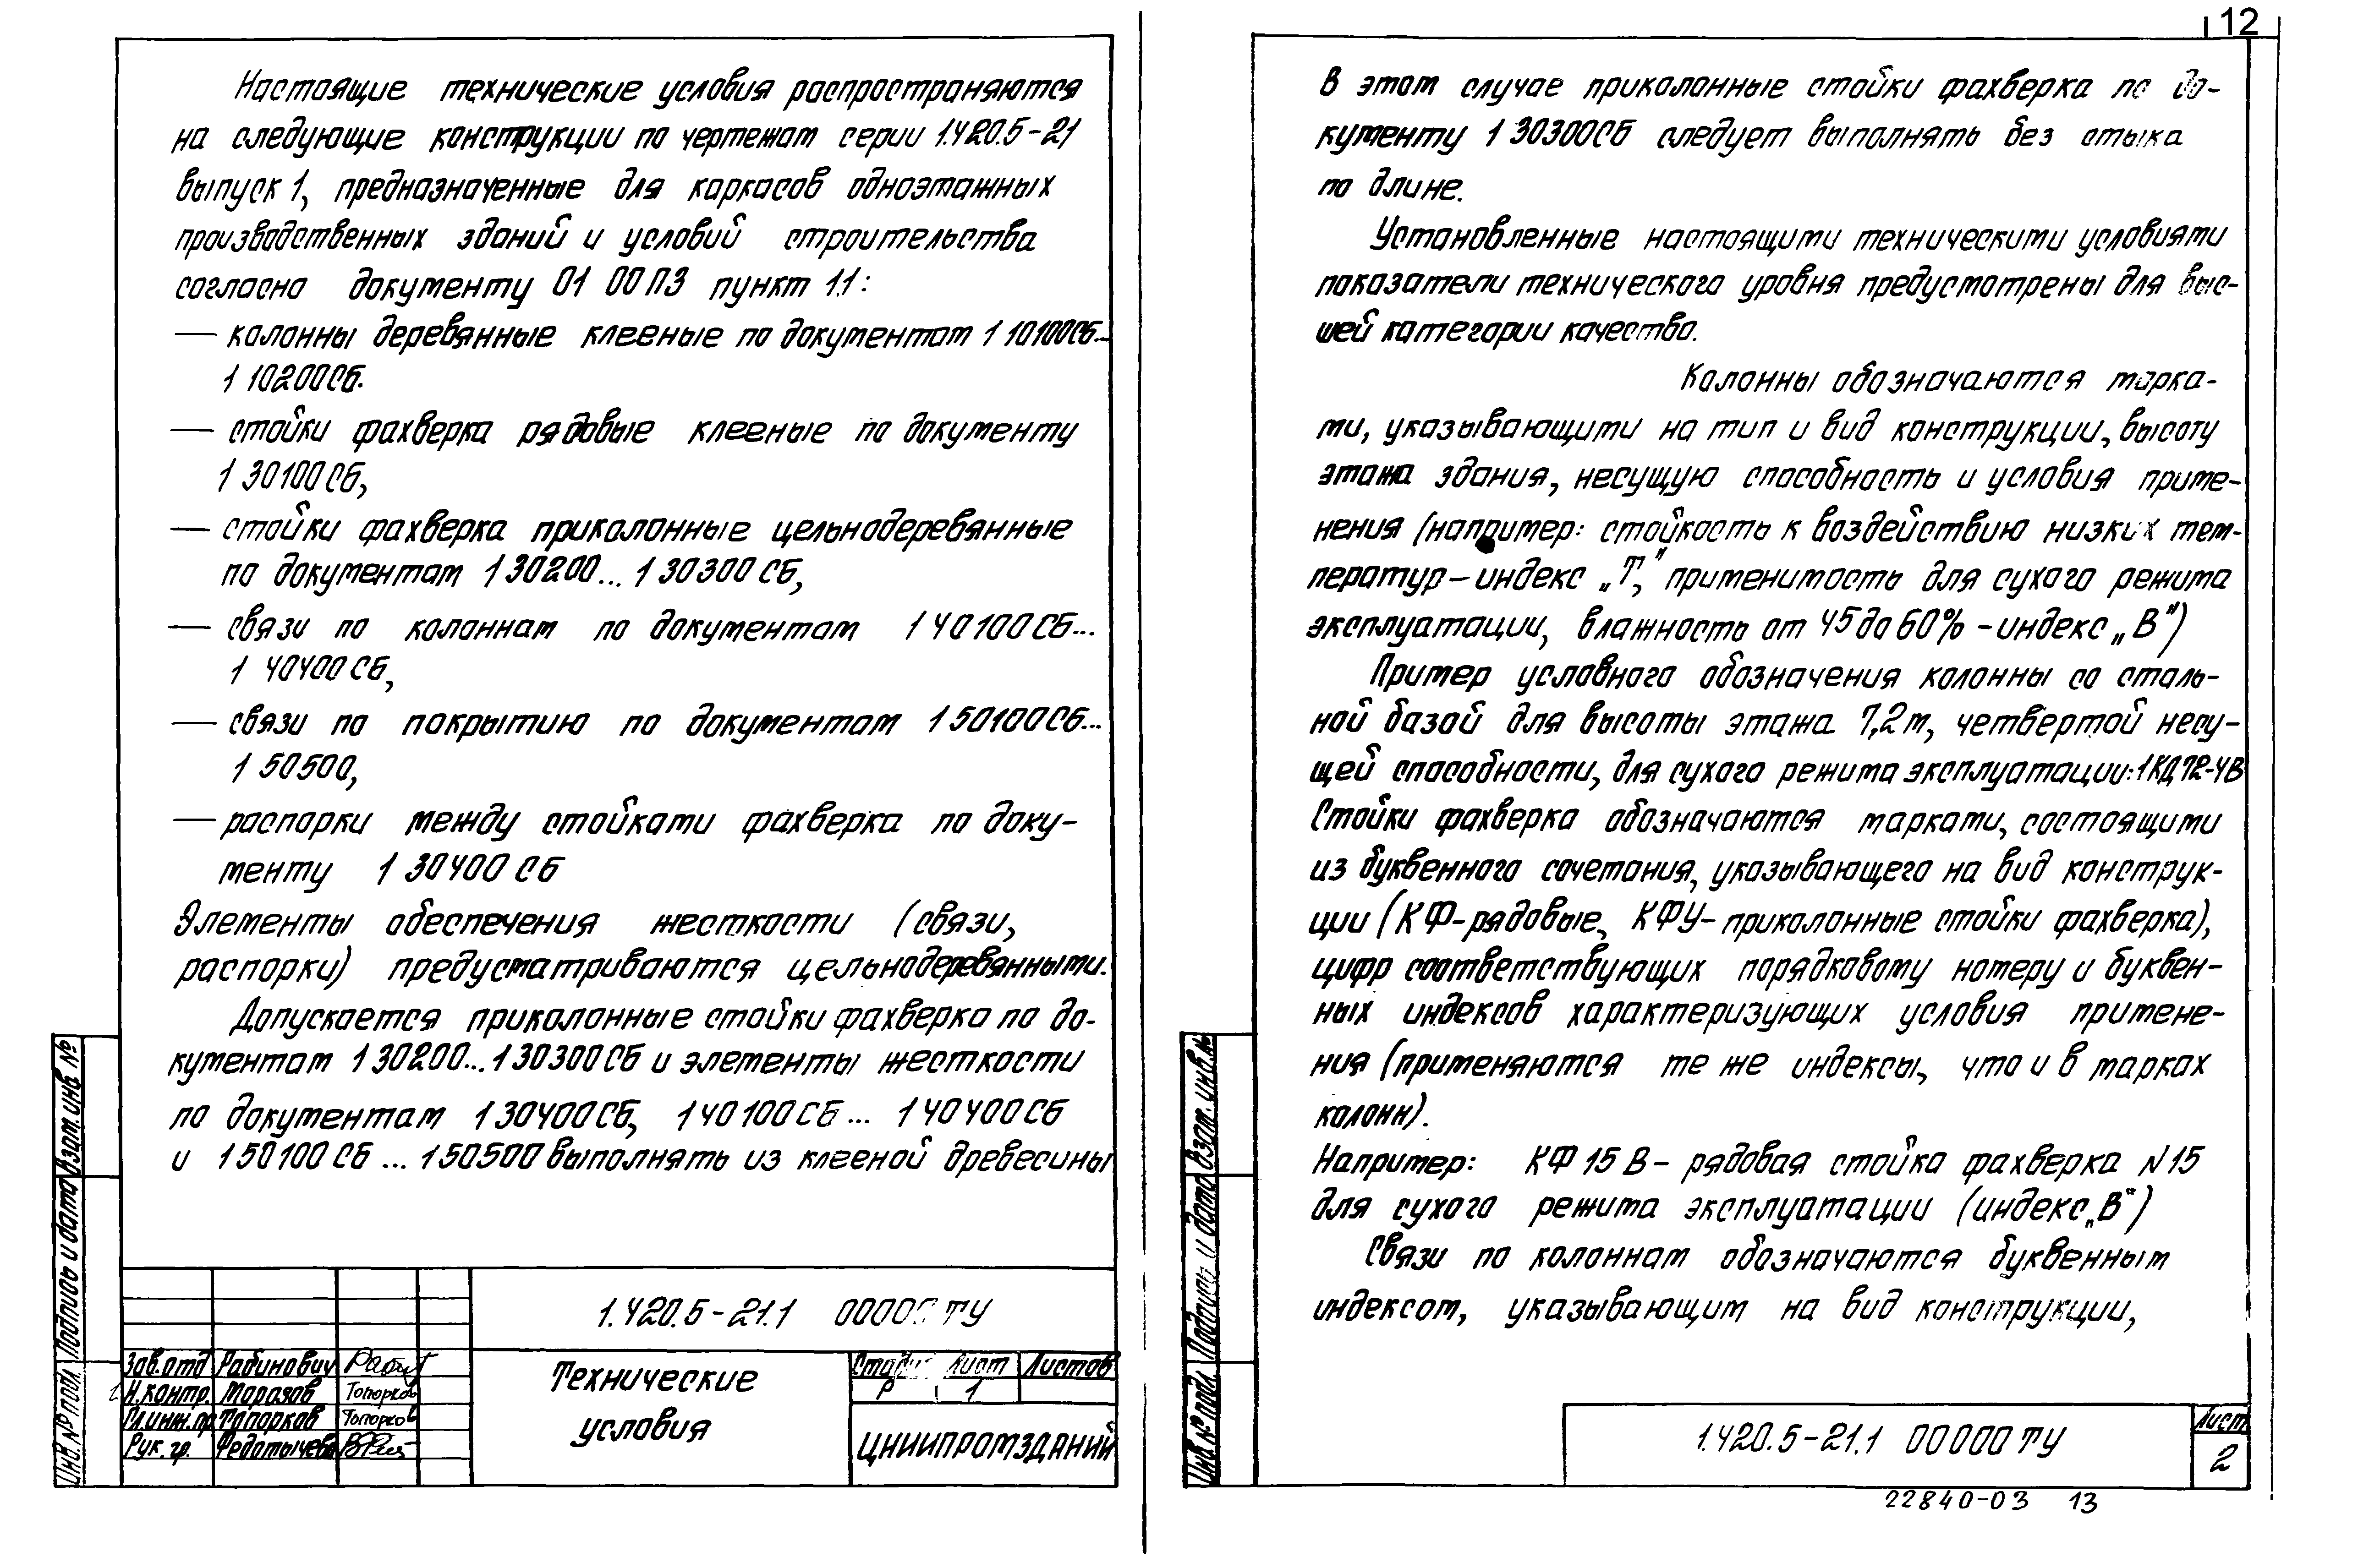 12
Настоящие технические условия распространяются
на следующие конструкции по чертежам серии 1.420.5-21
выпуск 1, предназначенные для каркасов одноэтажных
производственных зданий и условий строительства
согласно документу 01 00 ПЗ пункт 1.1:
— колонны деревянные клееные по документам 1 10100СБ...
1 10200СБ.
— стойки фахверка рядовые клееные по документу
1 30100СБ,
— стойки фахверка приколонные цельнодеревянные
по документам 1 30200...1 30300 СБ,
— связи по колоннам по документам 1 40100 СБ...
1 40400 СБ,
— связи по покрытию по документам 1 50100СБ...
1 50500,
— распорки между стойками фахверка по доку-
менту 1 30400 СБ
Элементы обеспечения жесткости (связи,
распорки) предусматриваются цельнодеревянными.
Допускается приколонные стойки фахверка по до-
кументам 1 30200...1 30300СБ и элементы жесткости
по документам 1 30400СБ, 1 40100СБ... 1 40400СБ
и 1 50100 СБ ... 1 50500 выполнять из клееной древесины
1.420.5-21.1 00000 ТУ
Зав.отд Рабинович
Н.контр. Морозов Топорков
Гл.инж.пр Топорков Топорков
Рук. гр. Федотычева
Технические
условия
Стадия Лист Листов
Р 1
ЦНИИПРОМЗДАНИЙ
Инв.№ подл. Подпись и дата Взам. инв №
В этом случае приколонные стойки фахверка по до-
кументу 1 30300СБ следует выполнять без стыка
по длине.
Установленные настоящими техническими условиями
показатели технического уровня предусмотрены для выс-
шей категории качества.
Колонны обозначаются марка-
ми, указывающими на тип и вид конструкции, высоту
этажа здания, несущую способность и условия приме-
нения (например: стойкость к воздействию низких тем-
ператур – индекс „Т", применимость для сухого режима
эксплуатации, влажность от 45 до 60% – индекс „В")
Пример условного обозначения колонны со сталь-
ной базой для высоты этажа 7,2 м, четвертой несу-
щей способности, для сухого режима эксплуатации: 1КД72-4В
Стойки фахверка обозначаются марками, состоящими
из буквенного сочетания, указывающего на вид конструк-
ции (КФ-рядовые, КФУ-приколонные стойки фахверка),
цифр соответствующих порядковому номеру и буквен-
ных индексов характеризующих условия примене-
ния (применяются те же индексы, что и в марках
колонн).
Например: КФ 15 В – рядовая стойка фахверка N 15
для сухого режима эксплуатации (индекс „В")
Связи по колоннам обозначаются буквенным
индексом, указывающим на вид конструкции,
1.420.5-21.1 00000 ТУ
Лист
2
Инв № подл. Подпись и дата Взам. инв.№
22840-03 13